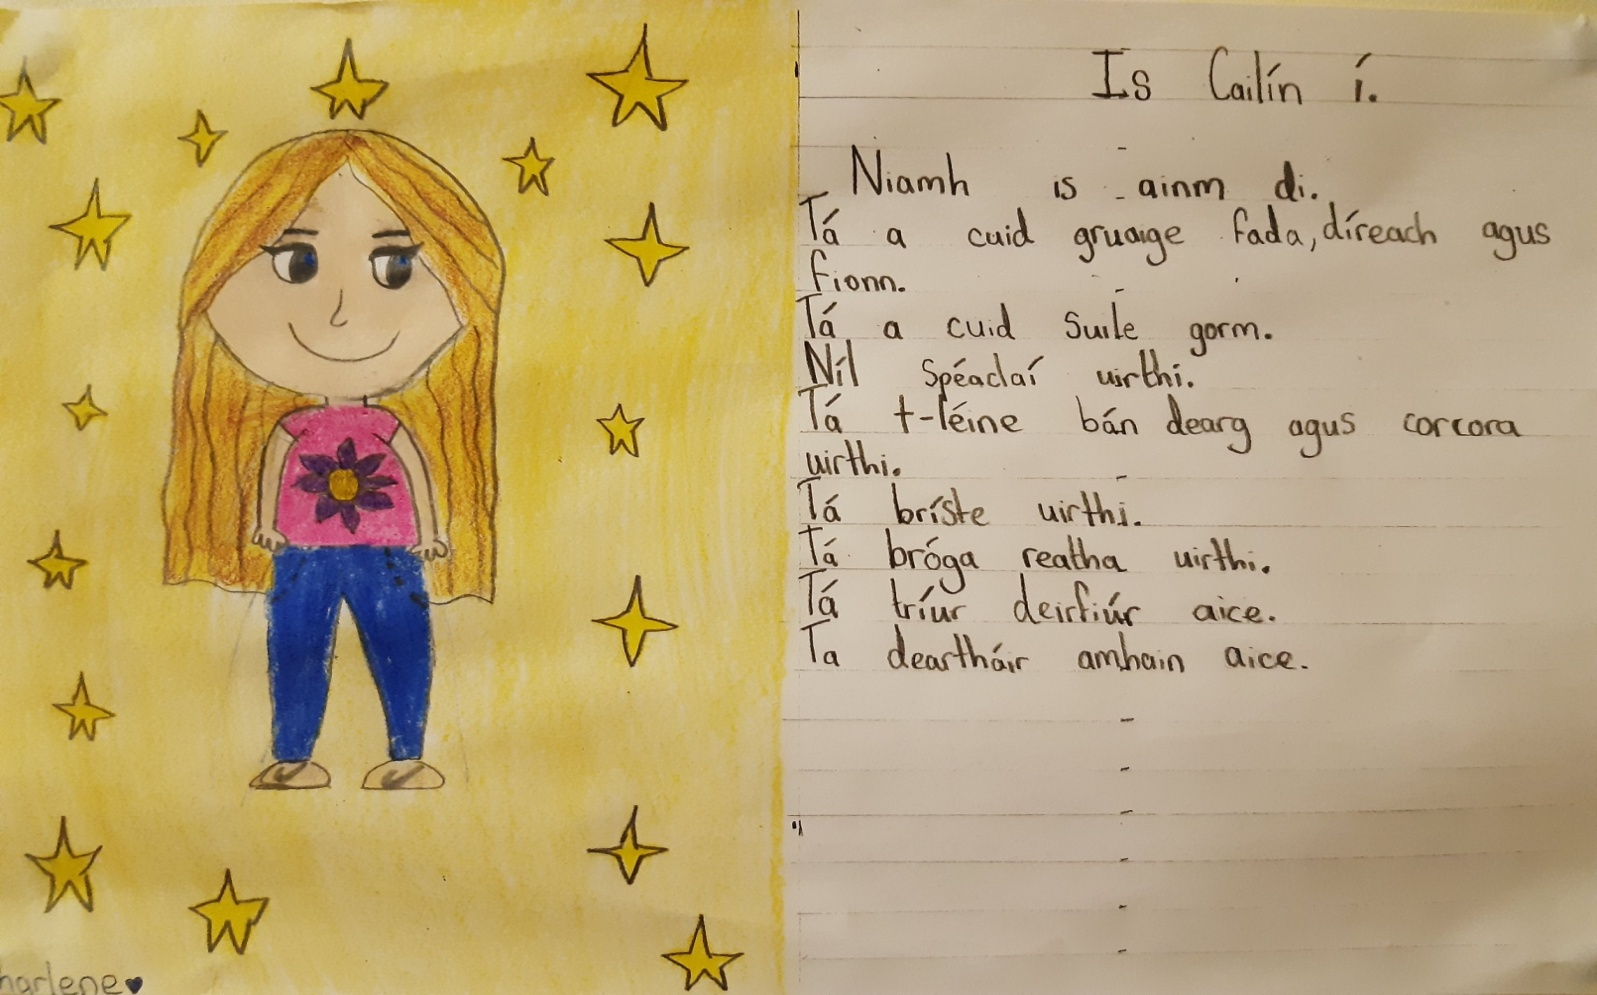 Is Cailín í.
Niamh is ainm di.
Tá a cuid gruaige fada, díreach agus
fionn.
Tá a cuid Suile gorm.
Níl Spéaclaí uirthi.
Tá t-léine bán dearg agus corcora
uirthi.
Tá bríste uirthi.
Tá bróga reatha uirthi.
Tá tríur deirfiúr aice.
Ta deartháir amhain aice.
harlene